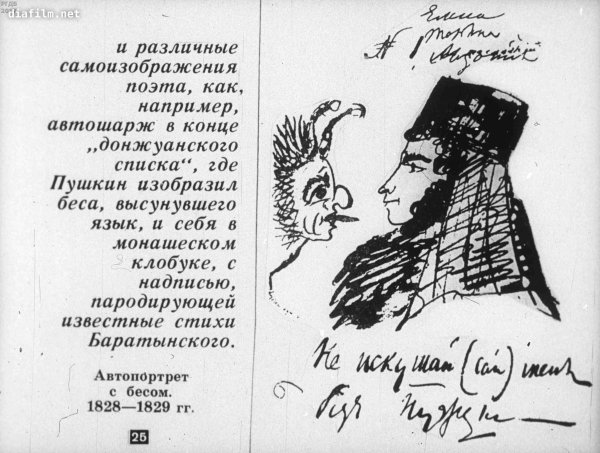 diafilm.net
и различные
самоизображения
поэта, как,
например,
автошарж в конце
„донжуанского
списка“, где
Пушкин изобразил
беса, высунувшего
язык, и себя в
монашеском
клобуке, с
надписью,
пародирующей
известные стихи
Баратынского.
Автопортрет
с бесом.
1828—1829 гг.
25
Елена
Не искушай (сай) меня
без нужды